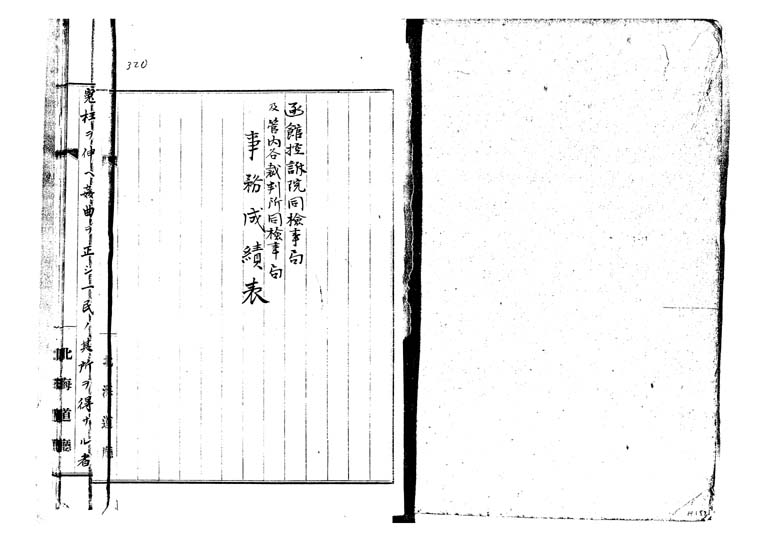 320
函館控訴院同檢事局
及管内各裁判所同檢事局
事務成績表
冤枉ヲ伸ヘ姦曲ヲ正シ一民ノ其所ヲ得サル者
北海道廳
北海道廳
H153